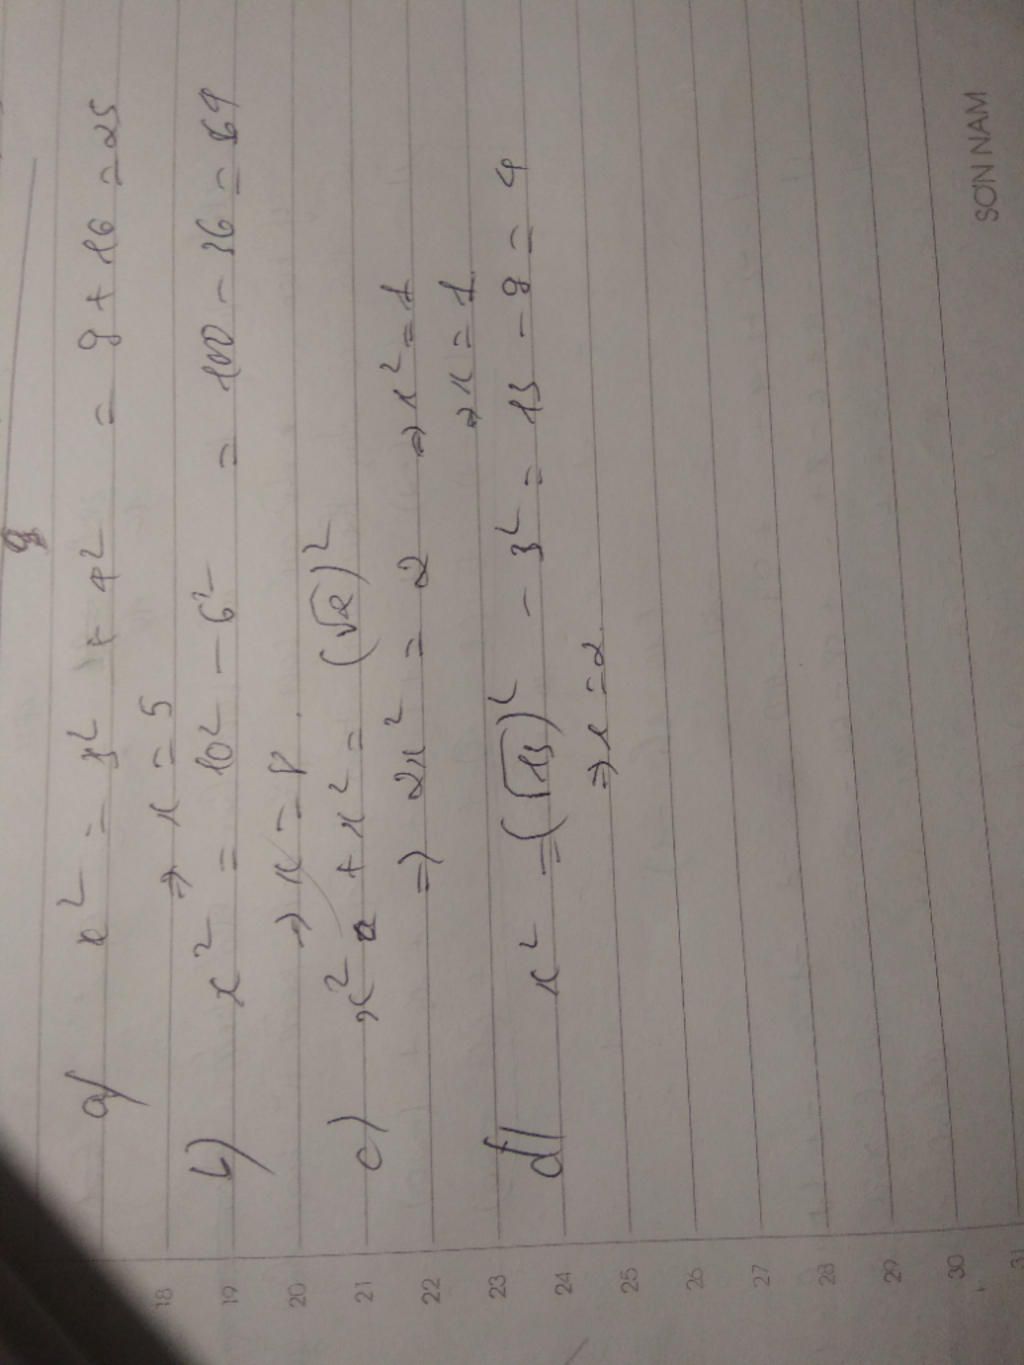 9
a) x² = 3² + 4² = 9 + 16 = 25
⇒ x = 5
b) x² = 10² - 6² = 100 - 36 = 64
⇒ x = 8
c) x² + x² = (√2)²
⇒ 2x² = 2 ⇒ x² = 1
⇒ x = 1
d) x² = (√13)² - 3² = 13 - 9 = 4
⇒ x = 2
18
19
20
21
22
23
24
25
26
27
28
29
30
31
SƠN NAM